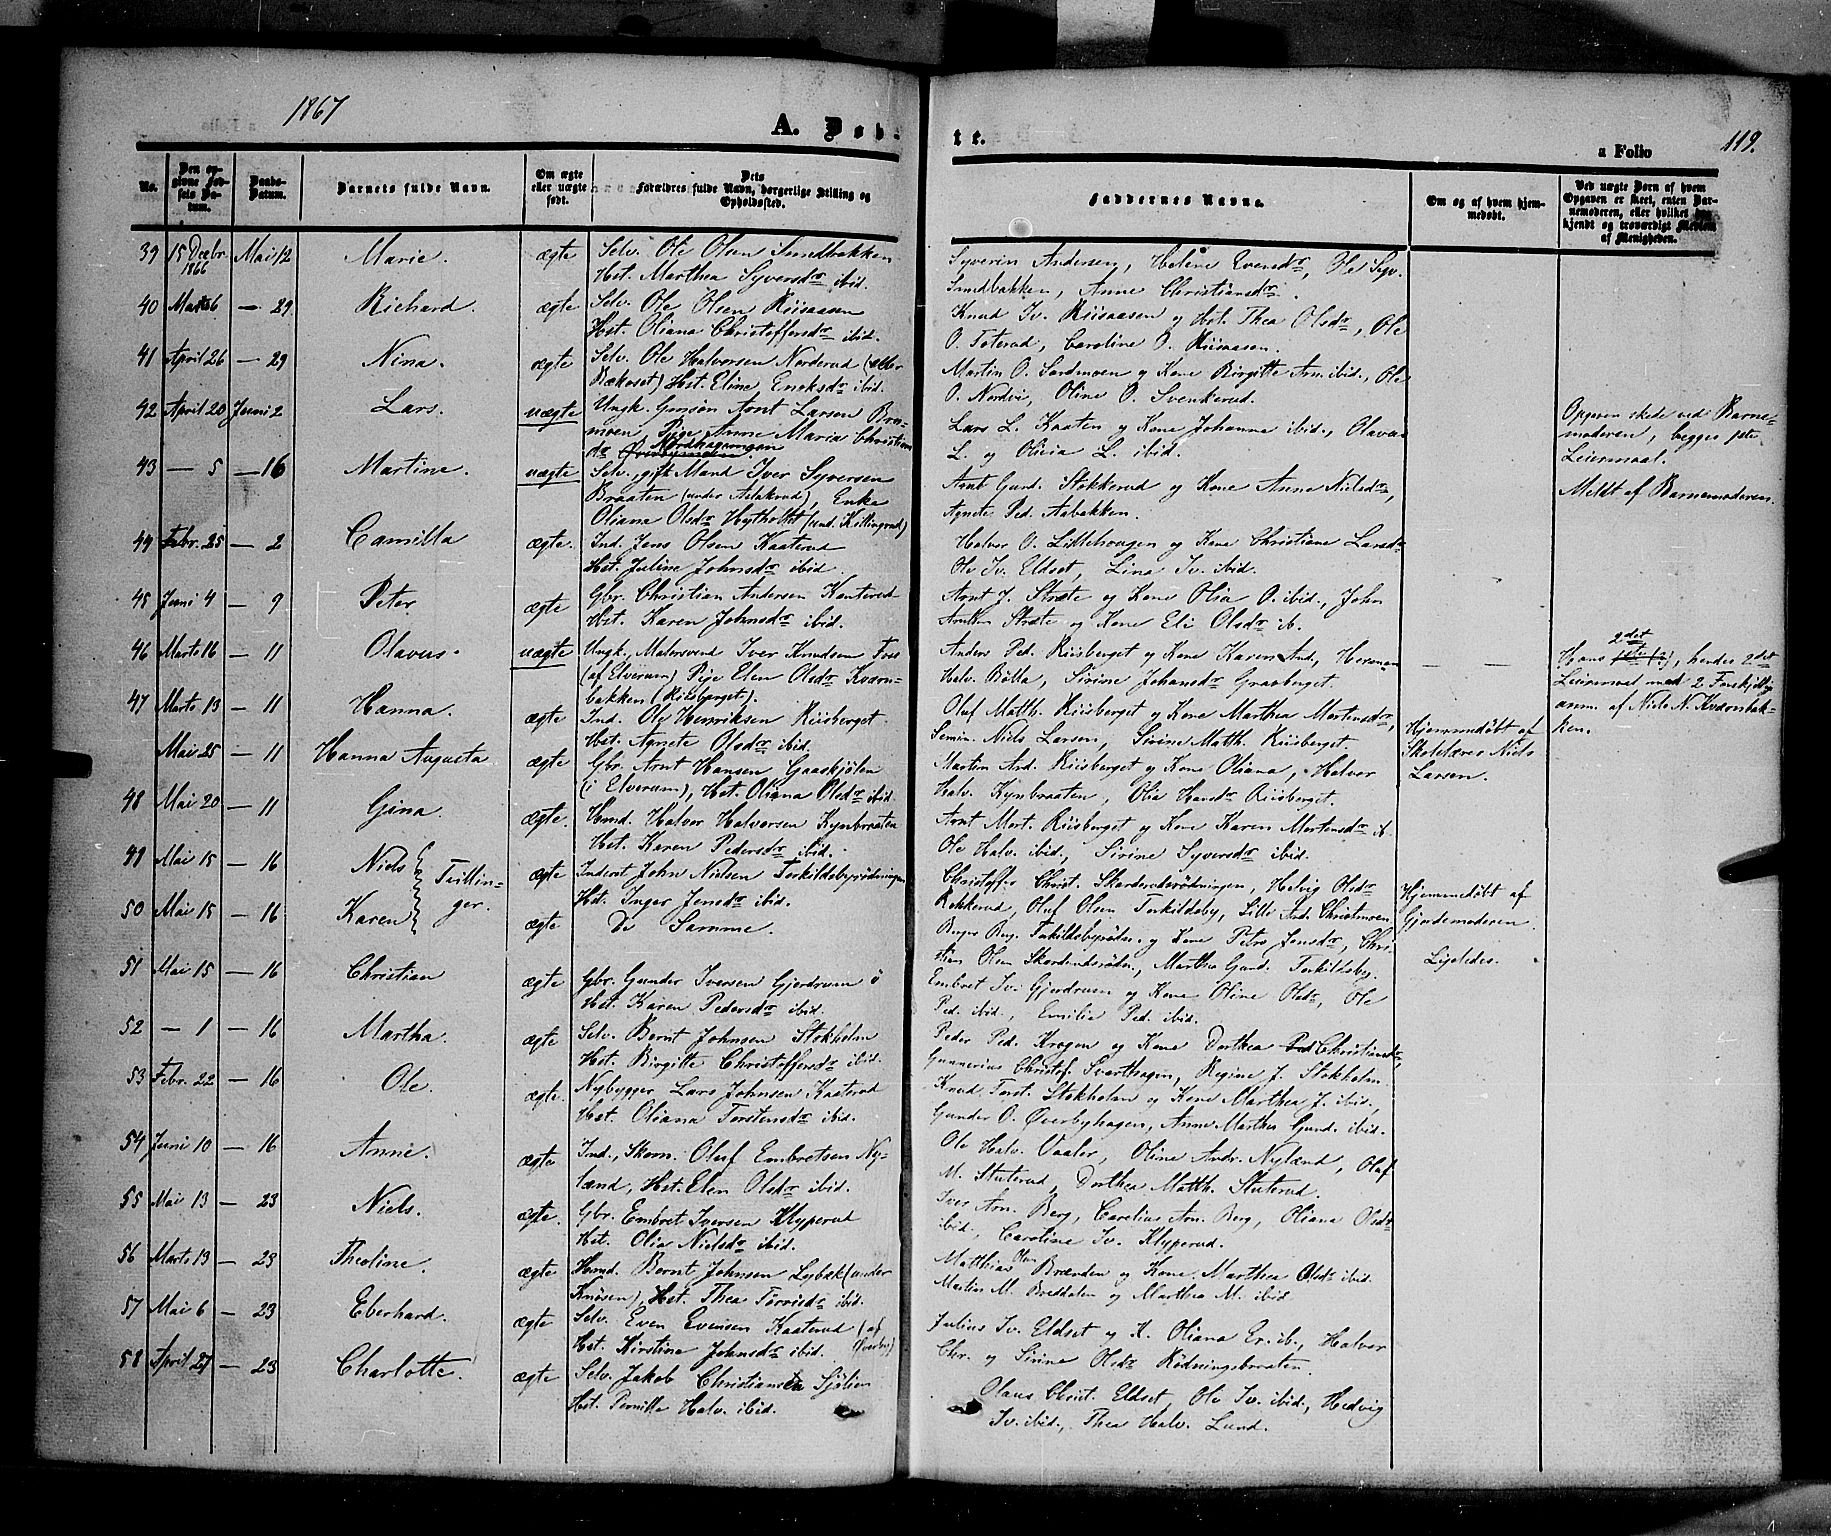 1867
A. Døb-
te.
a Folio
119.
No.
Den opgivne Fødsels Datum.
Daabs-Datum.
Barnets fulde Navn.
Om ægte eller uægte født.
Dets Forældres fulde Navn, borgerlige Stilling og Opholdssted.
Faddernes Navne.
Om og af hvem hjemmedøbt.
Ved uægte Børn af hvem Opgaven er skeet, enten Barnemoderen, eller hvilket bekjendt og troværdigt Medlem af Menigheden.
39 15 Decbr. 1866 Mai 12 Marie. ægte Selv. Ole Olsen Sundbakken
Hst. Marthea Syversdr ibid.
Syverin Andersen, Helene Evensdr, Ole Syv.
Sundbakken, Anne Christiansdr.
40 Marts 6 — 29 Richard. ægte Selv. Ole Olsen Riisaasen
Hst. Oliana Christoffersdr ibid.
Knud Iv. Riisaasen og Hst. Thea Olsdr, Ole
O. Foterud, Caroline O. Riisaasen.
41 April 26 — 29 Nina. ægte Selv. Ole Halvorsen Norderud (eller
Bækoset) Hst. Eline Ericksdr ibid.
Martin O. Sandmoen og Kone Birgitte Arn. ibid., Ole
O. Nordvi, Oline O. Svenkerud.
42 April 20 Juni 2 Lars. uægte Ungk. Arnt Larsen Bra-
moen Pige Anne Maria Christians
dr Nordhagaengen
Lars L. Kaaten og Kone Johanna ibid., Olavus
L. og Olivia L. ibid.
Opgaven skede ved Barne-
moderen, begges 1ste
Leiermaal.
43 — 5 — 16 Martine. uægte Selv. gift Mand Iver Syversen
Braaten (under Aslakrud), Enke
Oliana Olsdr Hythottet (und. Killingrud)
Arnt Gund. Stokkerud og Kone Anne Nielsdr,
Agnete Ped. Aabakken.
Meldt af Barnemoderen.
44 Febr. 25 — 2 Camilla ægte. Ind. Jens Olsen Kaaterud
Hst. Juline Johnsdr ibid.
Halvor O. Lillehougen og Kone Christiane Larsdr
Ole Iv. Eldset, Lina Iv. ibid.
45 Juni 4 — 9 Peter ægte Gbr. Christian Andersen Kanterud
Hst. Karen Johnsdr ibid.
Arnt J. Stræte og Kone Olia O. ibid., John
Stræte og Kone Eli Olsdr ib.
46 Marts 16 — 11 Olavus. uægte Ungk. Malersvend Iver Knudsen Fos
(af Elverum) Pige Elen Olsdr Kværn-
bakken (Riisberget).
Anders Ped. Riisberget og Kone Karen And., Herman
Halv. Bölla, Sirine Johansdr Graaberget.
— —
2det
Hans 1ste (?), hendes 2det
Leiermaal med 2 Forskjellige
anm. af Niels N. Kværnbak-
ken.
47 Marts 13 — 11 Hanna. ægte Ind. Ole Henriksen Riisberget
Hst. Agnete Olsdr ibid.
Oluf Matth. Riisberget og Kone Marthea Mortensdr,
Semin. Niels Larsen, Sirine Matth. Riisberget.
Hjemmedøbt af
Skolelærer Niels
Larsen.
Mai 25 — 11 Hanna Augusta ægte Gbr. Arnt Hansen Gaaskjölen
(i Elverum), Hst. Oliana Olsdr ibid.
Martin And. Riisberget og Kone Oliana, Halvor
Halv. Kynbraaten, Olia Hansdr Riisberget.
48 Mai 20 — 11 Gina. ægte. Hmd. Halvor Halvorsen Kynbraaten
Hst. Karen Pedersdr ibid.
Arnt Mort. Riisberget og Kone Karen Mortensdr ib.
Ole Halv. ibid., Sirine Syversdr ibid.
49 Mai 15 — 16 Niels Tvillin- ægte Inderst John Nielsen Torkildsbyrödningen
Hst. Inger Jensdr ibid.
Christoffer Christ. Skarderudsrödningen, Helvig Olsdr
Rekkerud, Oluf Olsen Torkildsby, Lilli And. Christmoen
Hjemmedøbt af
Gjordemoderen
50 Mai 15 — 16 Karen ger. ægte De Samme.
Torkildsbyrödn. og Kone Petro Jensdr, Chri-
stian Olsen Skarderudsrödn., Marthea Gund. Torkildsby.
Ligeledes.
51 Mai 15 — 16 Christian ægte Gbr. Gunder Iversen Gjerdrum ö
Hst. Karen Pedersdr ibid.
Embret Iv. Gjerdrum og Kone Oline Olsdr, Ole
Ped. ibid., Emilia Ped. ibid.
52 — 1 — 16 Martha. ægte Selv. Bernt Johnsen Stokholm
Hst. Birgitte Christoffersdr ibid.
Peder Ped. Krogen og Kone Dorthea Christiansdr,
Gunnerius Christof. Svarthagen, Regine J. Stokholm.
53 Febr. 22 — 16 Ole ægte. Nybygger Lars Johnsen Kaaterud
Hst. Oliana Torstensdr ibid.
Knud Torst. Stokholm og Kone Marthea J. ibid.,
Gunder O. Överbyhagen, Anne Marthea Gund. ibid.
54 Juni 10 — 16 Anne. ægte Ind., Skom. Oluf Embretsen Ny-
lænd, Hst. Elen Olsdr ibid.
Ole Halv. Vaaler, Oline Andr. Nylænd, Oluf
M. Stuterud, Dorthea Matth. Stuterud.
55 Mai 13 — 23 Niels. ægte. Gbr. Embret Iversen Klyperud
Hst. Olia Nielsdr ibid.
Iver Arn. Berg, Carelius Arn. Berg, Oliana Olsdr
ibid., Caroline Iv. Klyperud.
56 Marts 13 — 23 Theoline. ægte Hmd. Bernt Johnsen Lybæk (under
Knösen), Hst. Thea Torrisdr ibid.
Matthias Olsen Brænden og Kone Marthea Olsdr ibid.
Martin M. Breddalen og Marthea M. ibid
57 Mai 6 — 23 Eberhard. ægte Selv. Even Evensen Kaaterud (af
Hst. Kirstine Johnsdr ibid. Överby)
Julius Iv. Eldset og K. Oliana Er. ib., Halvor
Chr. og Sirine Olsdr Rödningsbraaten
58 April 27 — 23 Charlotte. ægte Selv. Jakob Christiansen Sjölien
Hst. Pernille Halv. ibid.
Olaus Christ. Eldset, Ole Iv. ibid., Hedvig
Iv. ibid., Thea Halv. Lund.